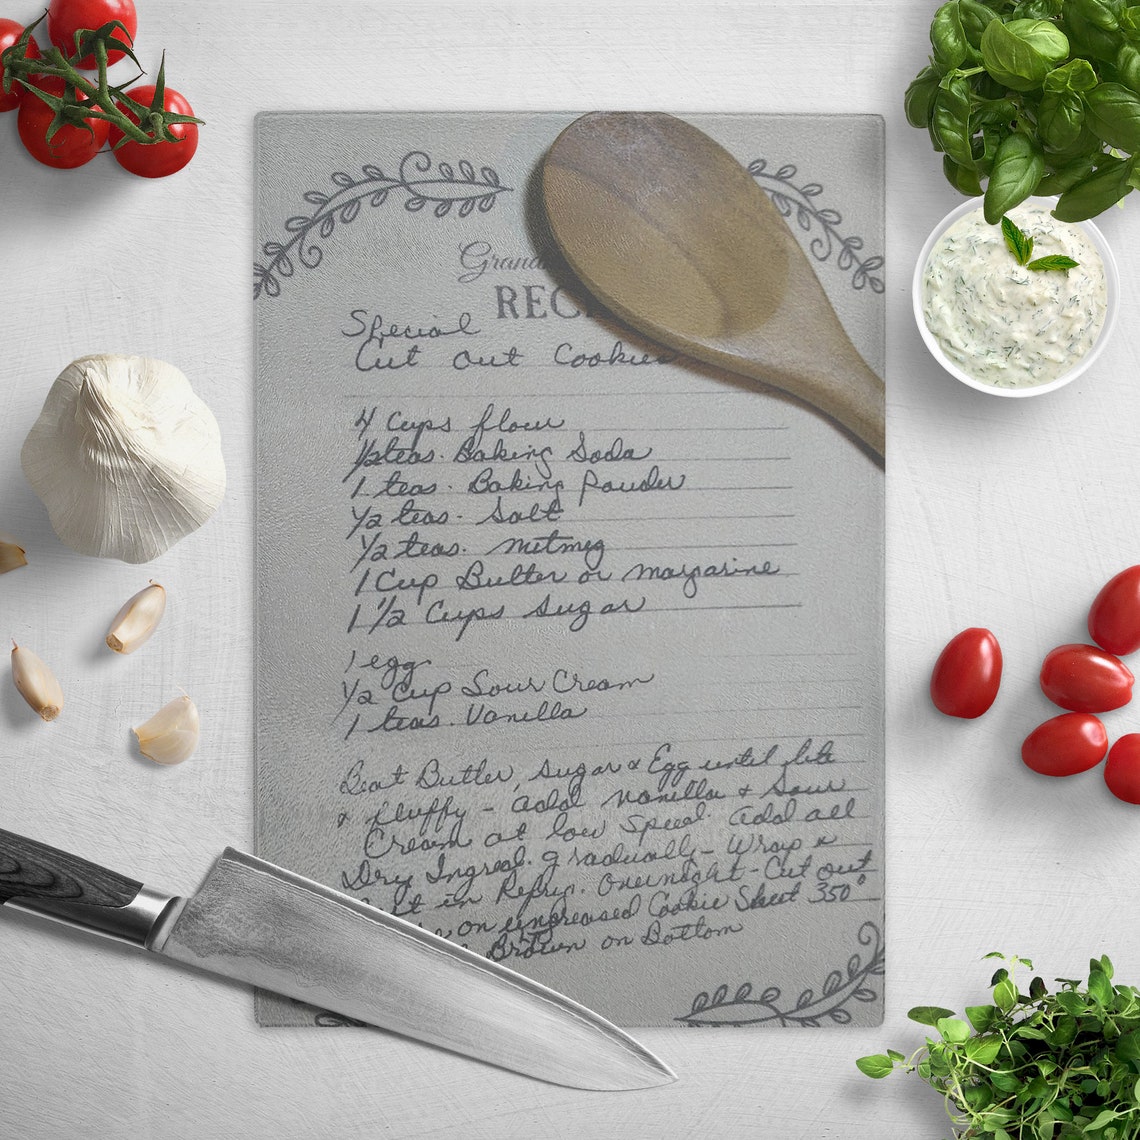 Grand
REC
Special
Cut out Cookies
4 Cups flour
1/2 teas. Baking Soda
1 teas. Baking Powder
1/2 teas. Salt
1/2 teas. nutmeg
1 Cup Butter or margarine
1 1/2 Cups Sugar
1 egg
1/2 Cup Sour Cream
1 teas. Vanilla
Beat Butter, Sugar & Egg until lite
& fluffy - add Vanilla & Sour
Cream at low Speed. add all
Dry Ingred. gradually - Wrap &
in Refrig. Overnight - Cut out
on ungreased Cookie Sheet 350°
Brown on Bottom